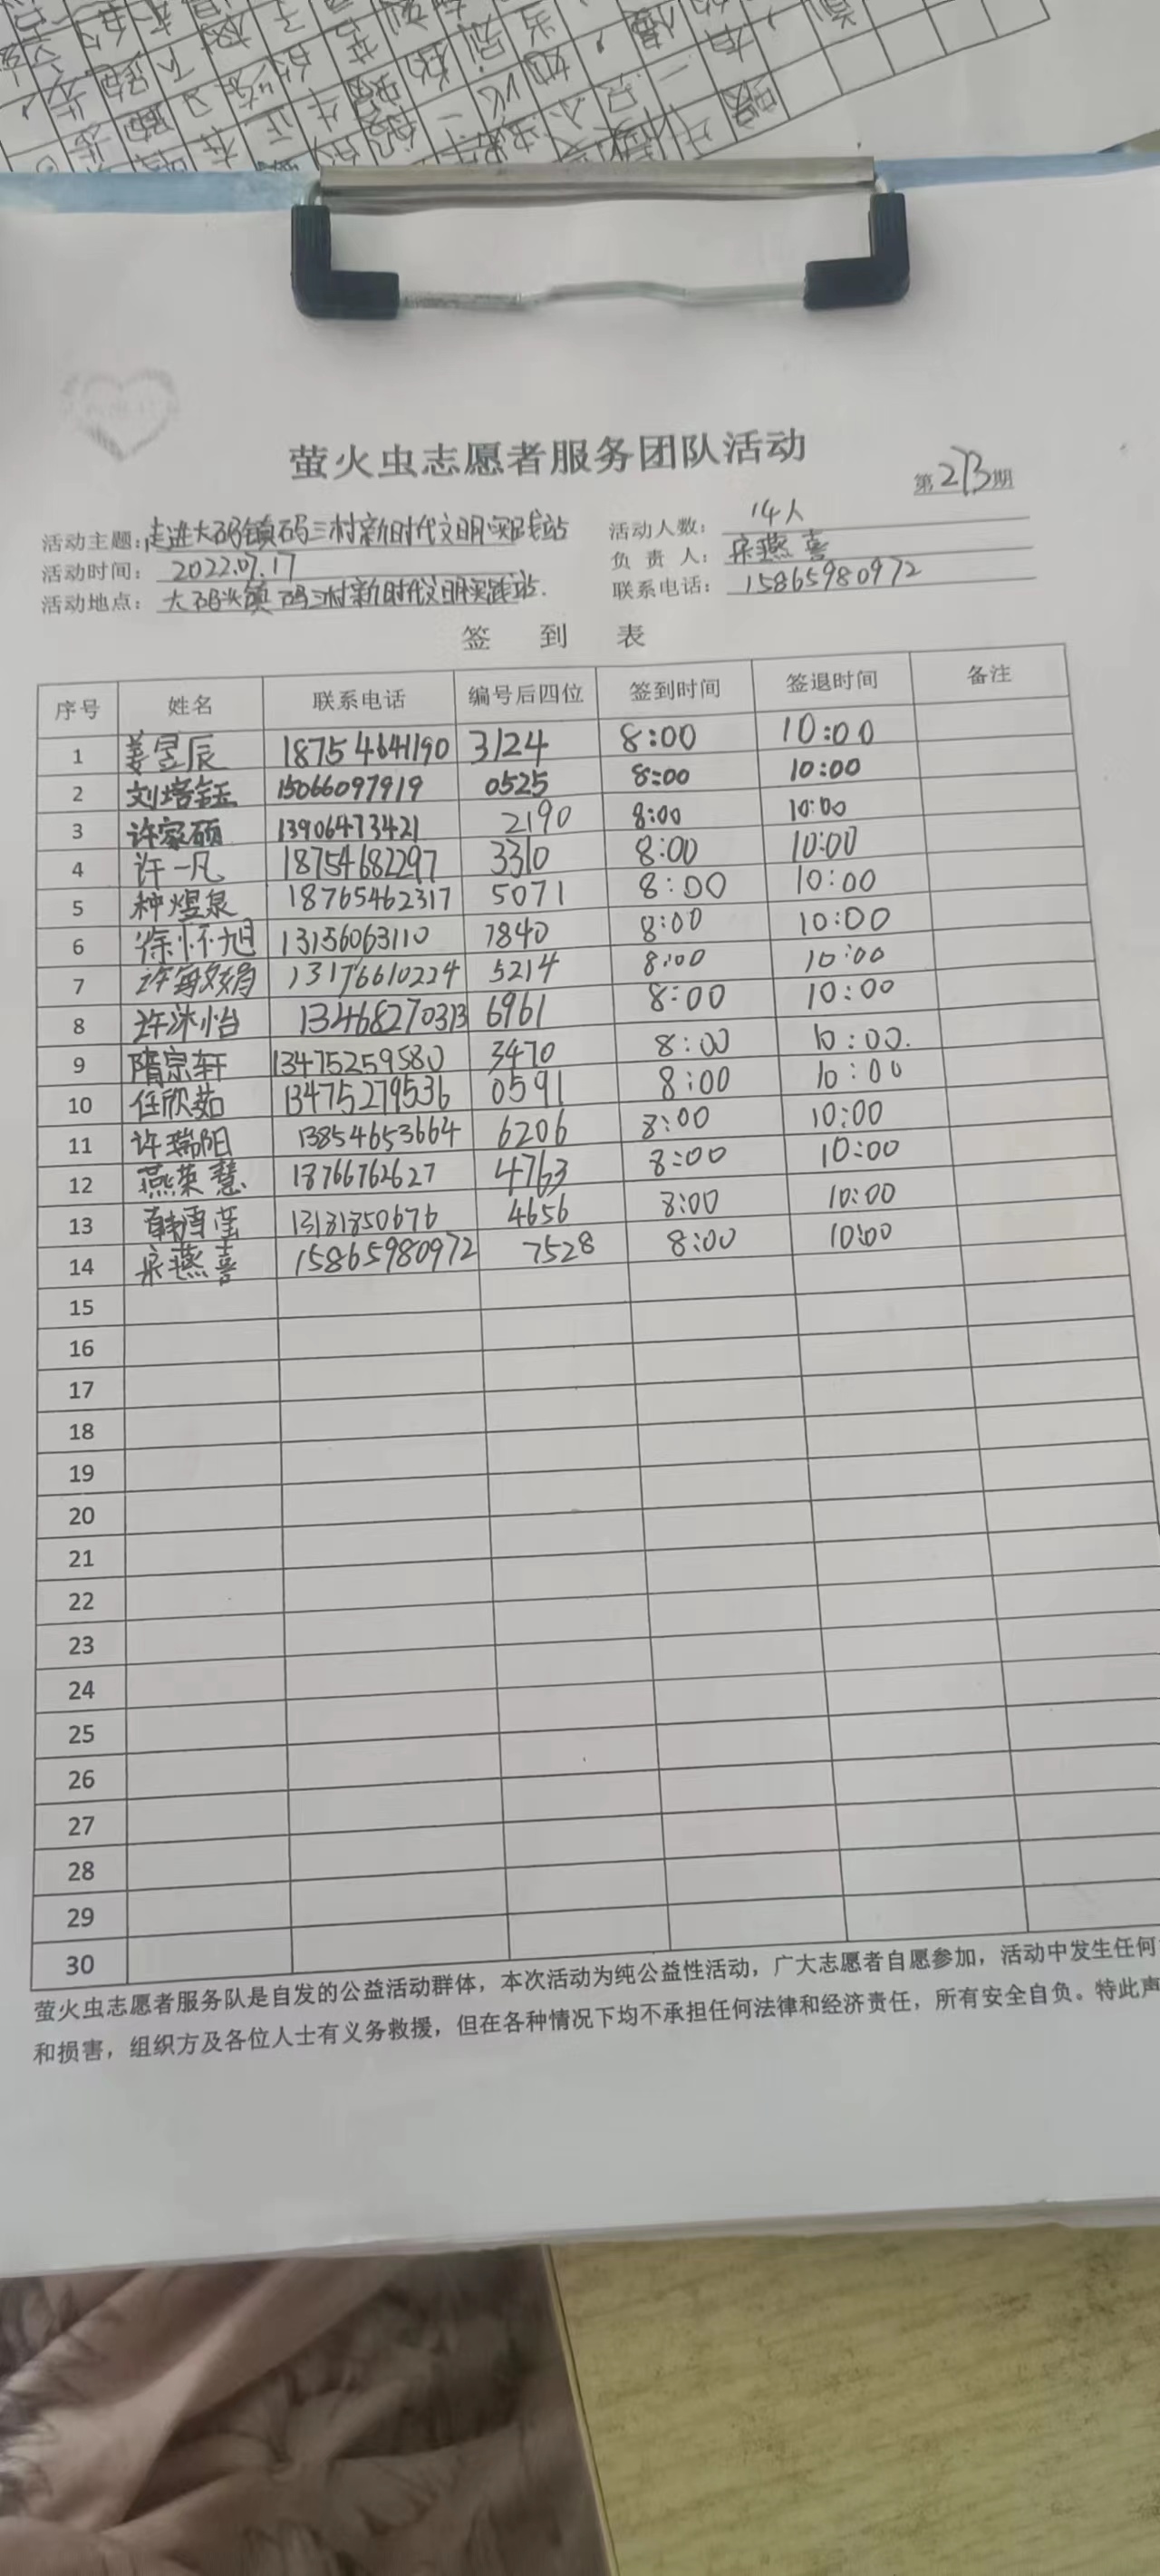 萤火虫志愿者服务团队活动
第273期
活动主题：走进大码镇码三村新时代文明实践站 活动人数： 14人
活动时间： 2022.07.17 负 责 人： 宋燕喜
活动地点： 大码头镇码三村新时代文明实践站. 联系电话： 15865980972
签 到 表
序号 姓名 联系电话 编号后四位 签到时间 签退时间 备注
1 姜昱辰 18754641190 3124 8:00 10:00
2 刘培钰 15066097919 0525 8:00 10:00
3 许家硕 13906473421 2190 8:00 10:00
4 许一凡 18754682297 3310 8:00 10:00
5 种煜泉 18765462317 5071 8:00 10:00
6 徐怀旭 13156063110 7840 8:00 10:00
7 许海娟 13176610224 5214 8:00 10:00
8 许沐怡 13468270313 6961 8:00 10:00
9 隋宗轩 13475259580 3470 8:00 10:00.
10 任欣茹 13475279536 0591 8:00 10:00
11 许瑞阳 13854653664 6206 8:00 10:00
12 燕荣慧 18766762627 4763 8:00 10:00
13 韩雪莹 13181850676 4656 8:00 10:00
14 宋燕喜 15865980972 7528 8:00 10:00
15
16
17
18
19
20
21
22
23
24
25
26
27
28
29
30
萤火虫志愿者服务队是自发的公益活动群体，本次活动为纯公益性活动，广大志愿者自愿参加，活动中发生任何
和损害，组织方及各位人士有义务救援，但在各种情况下均不承担任何法律和经济责任，所有安全自负。特此声